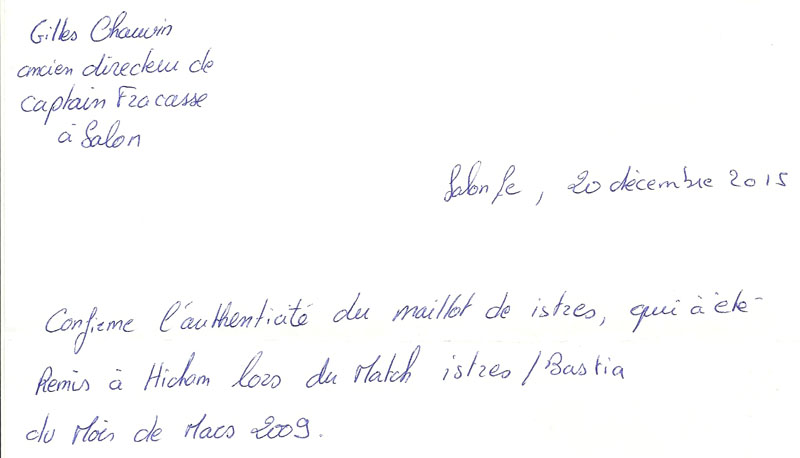 Gilles Chauvin
ancien directeur de
Captain Fracasse
à Salon
Salon le, 20 décembre 2015
Confirme l'authenticité du maillot de istres, qui à été
Remis à Hicham lors du Match istres / Bastia
du Mois de Mars 2009.